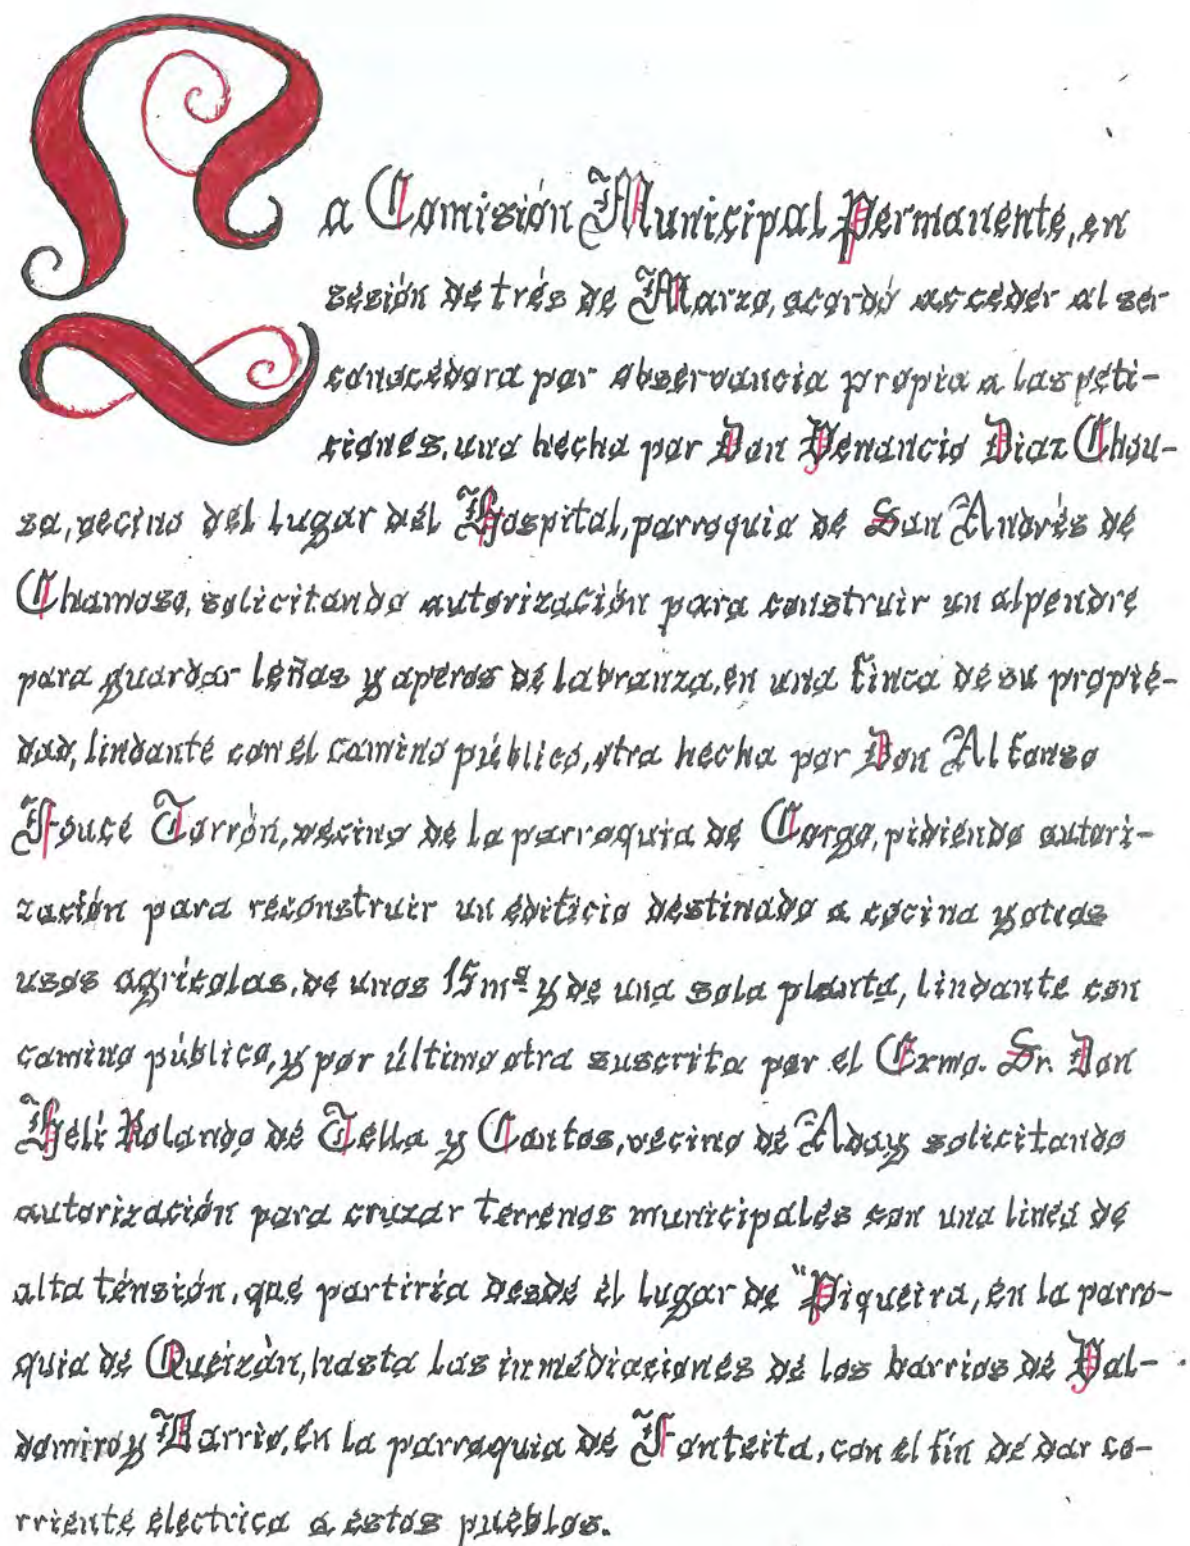 La Comisión Municipal Permanente, en
sesión de tres de Marzo, acordó acceder al ser
conocedora por observancia propia a las peti-
ciones, una hecha por Don Venancio Diaz Chou-
sa, vecino del lugar del Hospital, parroquia de San Andrés de
Chamoso, solicitando autorización para construir un alpendre
para guardar leñas y aperos de labranza, en una finca de su propie-
dad, lindante con el camino público, otra hecha por Don Alfonso
Fouce Torrón, vecino de la parroquia de Corgo, pidiendo autori-
zación para reconstruir un edificio destinado a cocina y otros
usos agrícolas, de unos 15 m² y de una sola planta, lindante con
camino público, y por último otra suscrita por el Exmo. Sr. Don
Helí Rolando de Tella y Cantos, vecino de Aday solicitando
autorización para cruzar terrenos municipales con una linea de
alta tensión, que partiría desde el lugar de "Piqueira, en la parro-
quia de Queizàn, hasta las inmediaciones de los barrios de Val-
domiro y Barrio, en la parroquia de Fonteita, con el fín de dar co-
rriente eléctrica a estos pueblos.